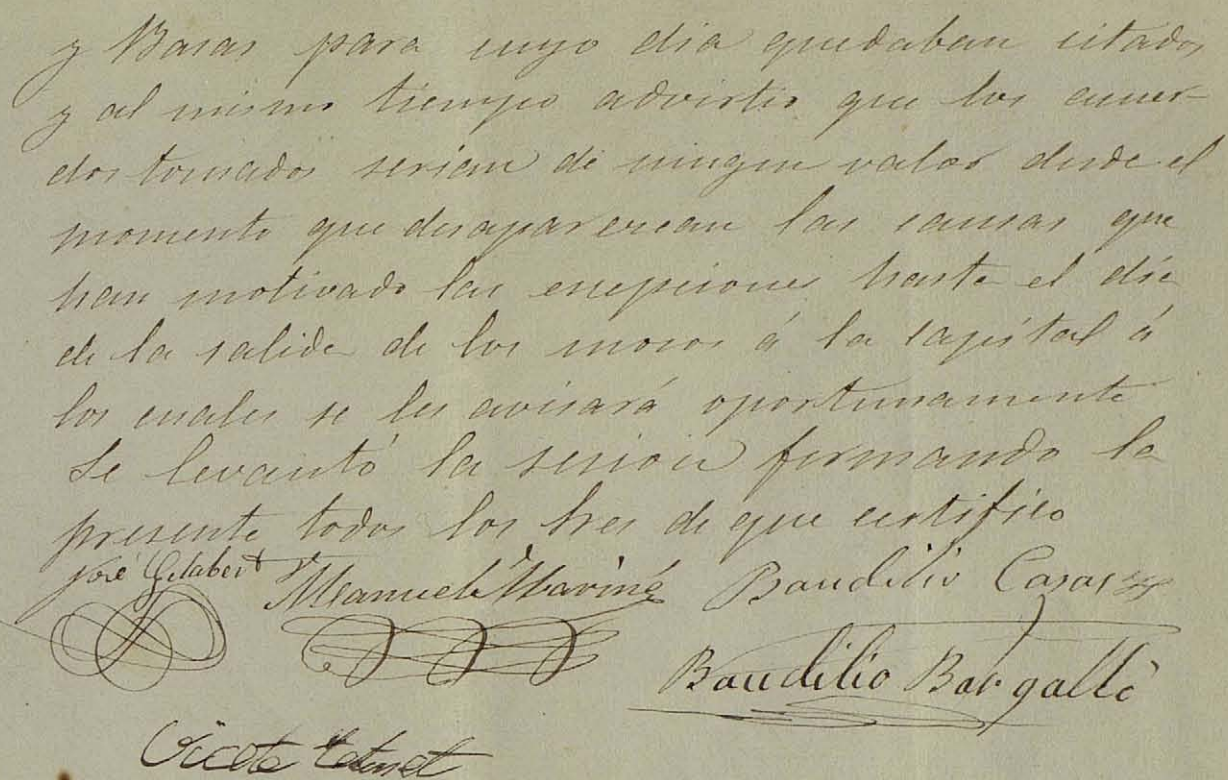 y Basas para cuyo dia quedaban citados
y al mismo tiempo advirtio que los acuer-
dos tomados serian de ningun valor desde el
momento que desaparezcan las causas que
han motivado las excepciones hasta el dia
de la salida de los mozos á la capital á
los cuales se les avisará oportunamente
Se levantó la sesion firmando la
presente todos los Sres de que certifico
José Gelabert Manuel Mariné Baudilio Casas
Baudilio Bargalló